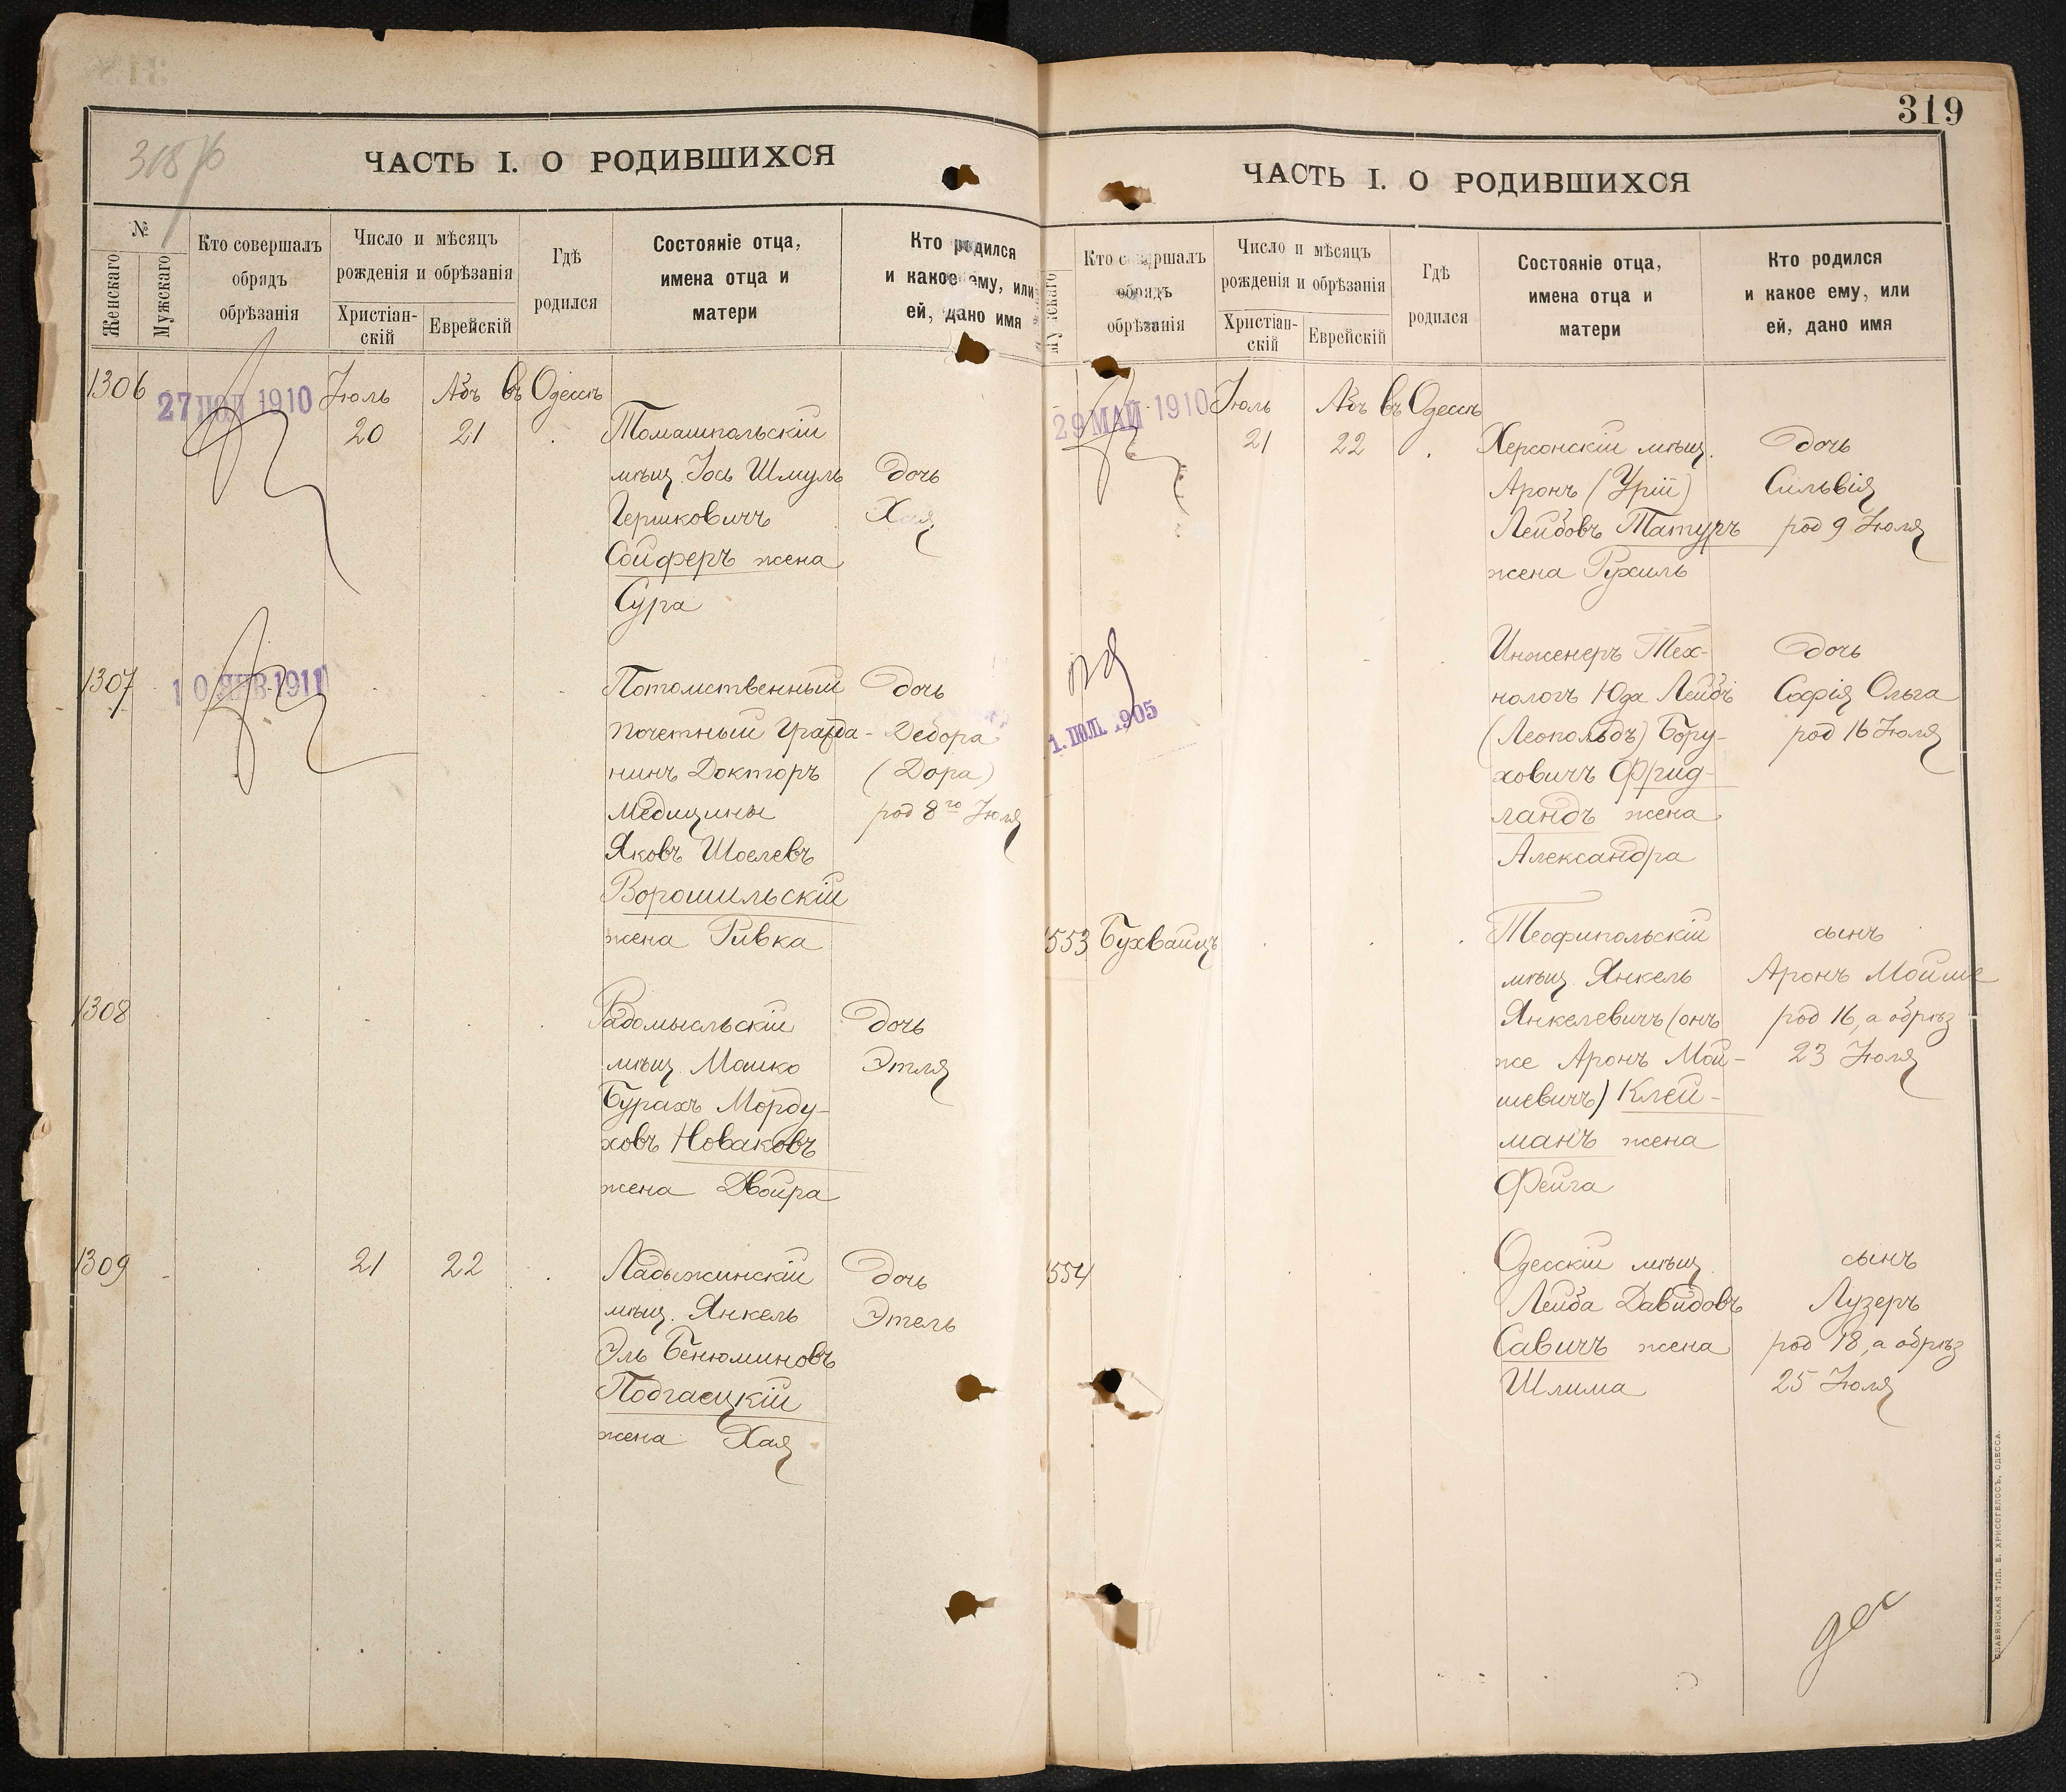 318 об
ЧАСТЬ I. О РОДИВШИХСЯ
№
Женскаго
Мужскаго
Кто совершалъ
обрядъ
обрѣзанія
Число и мѣсяцъ
рожденія и обрѣзанія
Христіан-
скій
Еврейскій
Гдѣ
родился
Состояніе отца,
имена отца и
матери
Кто родился
и какое ему, или
ей, дано имя
1306
27 ІЮЛ 1910
Іюль Абъ въ Одессѣ
20 21 Томашпольскій
мѣщ. Іось Шмуль дочь
Гершковичъ Хая
Сойферъ жена
Сура
1307 10 ЯНВ. 1911 Потомственный дочь
почетный гражда- Дебора
нинъ Докторъ (Дора)
Медицины род 8го Іюля
Яковъ Шоелевъ
Ворошильскій
жена Ривка
1308 Радомысльскій дочь
мѣщ. Мошко Этля
Бурахъ Морду-
ховъ Новаковъ
жена Двойра
1309 21 22 Ладыжинскій дочь
мѣщ. Янкель Этель
Эль Бенюминовъ
Подгаецкій
жена Хая
319
ЧАСТЬ I. О РОДИВШИХСЯ
Кто совершалъ
обрядъ
обрѣзанія
Число и мѣсяцъ
рожденія и обрѣзанія
Христіан-
скій
Еврейскій
Гдѣ
родился
Состояніе отца,
имена отца и
матери
Кто родился
и какое ему, или
ей, дано имя
29 МАЙ 1910 Іюль Абъ въ Одессѣ
21 22 Херсонскій мѣщ. дочь
Аронъ (Урій) Сильвія
Лейбовъ Татуръ род 9 Іюля
жена Рухиль
Инженеръ Тех- дочь
нологъ Юда Лейбъ Софія Ольга
1. ІЮЛ. 1905 (Леопольдъ) Бору- род 16 Іюля
ховичъ Фрид-
ландъ жена
Александра
553 Бухвайцъ Теофипольскій сынъ
мѣщ. Янкель Аронъ Мойше
Янкелевичъ (онъ род 16, а обрѣз
же Аронъ Мой- 23 Іюля
шевичъ) Клей-
манъ жена
Фейга
554 Одесскій мѣщ. сынъ
Лейба Давидовъ Лузеръ
Савичъ жена род 18, а обрѣз
Шлима 25 Іюля
СЛАВЯНСКАЯ ТИП. Е. ХРИСОГЕЛОСЪ, ОДЕССА.